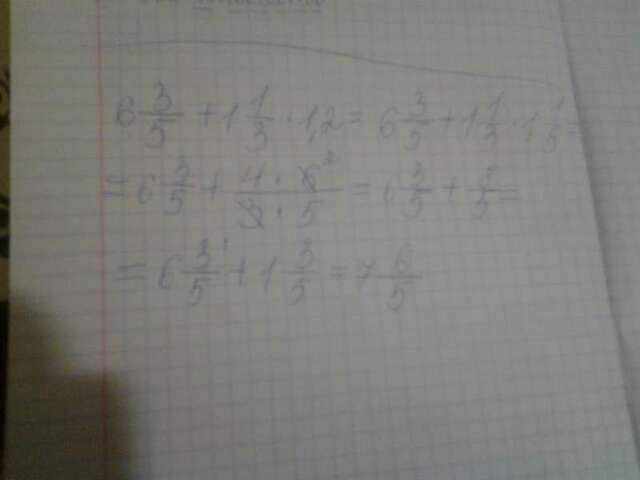 6 3/5 + 1 1/3 · 1,2 = 6 3/5 + 1 1/3 · 1 1/5 =
= 6 3/5 + 4 · 6 2 / 3 · 5 = 6 3/5 + /5 =
= 6 3/5 + 1 3/5 = 7 6/5